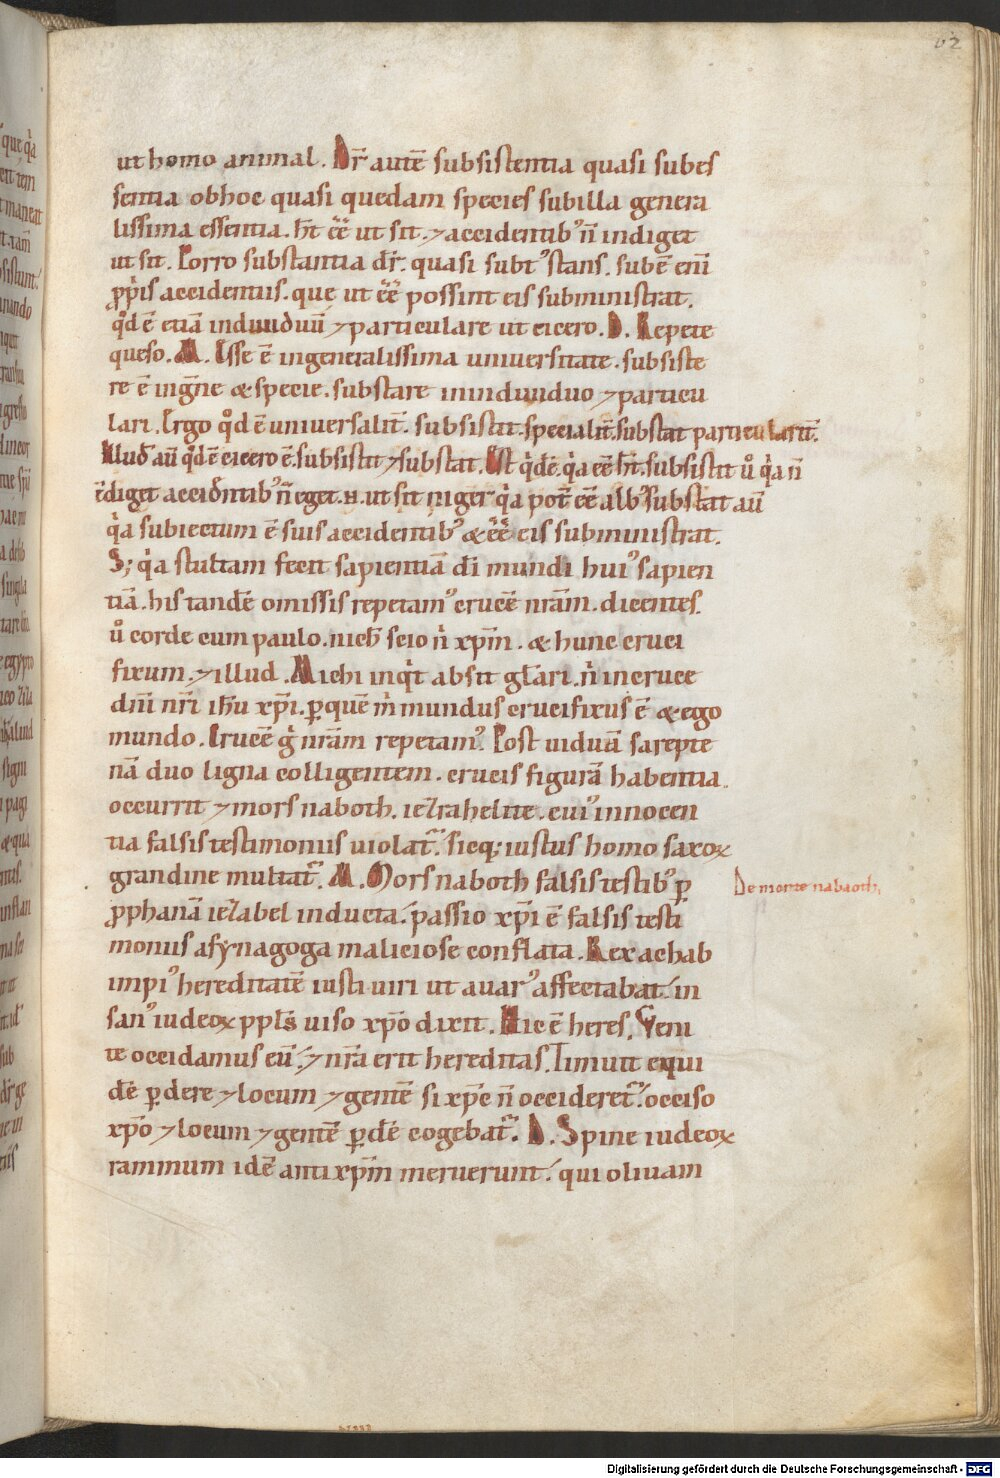 62
ut homo animal. Dr̄ autē subsistentia quasi subes
sentia obhoc quasi quedam species subilla genera
lissima essentia. hȓ eē̄ ut sit. ⁊accidentibꝰ n̄ indiget
ut sit. Porro substantia dr̄. quasi subtꝰstans. subē eni̅
ꝓpͥis accidentiis. que ut eē̄ possint eis subministrat.
qͦd ē etiā indiuiduū ⁊particulare ut cicero. D. Repete
queso. M. Esse ē ingeneralissima uniuersitate. subsiste
re ē ingn̄e & specie. substare inindiuiduo ⁊particu
lari. Ergo qͦd ē uniuersalit̄. subsistit. specialit̄. substat particularit̄.
Illud aū qͦd ē cicero ē. subsistit ⁊substat. Est qͥdē. qͥa eē hȓ. subsistit ů qͥa n̄
ēdiget accidn̄tibꝰ n̄ eget. n. ut sit niger qͥa pot̄ eē albꝰ substat aū
qͥa subiectum ē suis accidentibꝰ & eē̄ eis subministrat.
S; qͥa stultam fecit sapientiā di̅ mundi huiꝰ sapien
tiā. his tandē omissis repetamꝰ crucē nr̄am. dicentes.
ů corde cum paulo. nich̄ scio nͥ xpm̄. & hunc cruci
fixum. ⁊illud. Michi inqͥt absit gl̄ari. nͥ incruce
dni̅ nr̄i ih̄u xpi̅. ꝑquē mͥ mundus crucifixus ē & ego
mundo. Crucē gͥ nr̄am repetamꝰ. Post uiduā sarepte
nā duo ligna colligentem. crucis figurā habentia.
occurrit ⁊mors naboth. iezrahelite. cuiꝰ innocen
tia falsis testimoniis uiolat᷑. sicq; iustus homo saxoꝝ
grandine multat᷑. M. Mors naboth falsis testibꝰ ꝑ
ꝓphanā iezabel inducta. passio xpi̅ ē falsis testi
moniis asynagoga maliciose conflata. Rex achab
impiꝰ hereditatē iusti uiri ut auarꝰ affectabat. in
sanꝰ iudeoꝝ ppl̄s uiso xp̄o dixit. Hic ē heres. Veni
te occidamus eū. ⁊ nr̄a erit hereditas. Timuit equi
dē ꝑdere ⁊locum ⁊gentē si xp̄c n̄ occideret᷑. occiso
xp̄o ⁊locum ⁊gentē ꝑdē cogebat᷑. D. Spine iudeoꝝ
ramnum idē antixp̄m meruerunt. qui oliuam
De morte nabaoth.
Digitalisierung gefördert durch die Deutsche Forschungsgemeinschaft - DFG